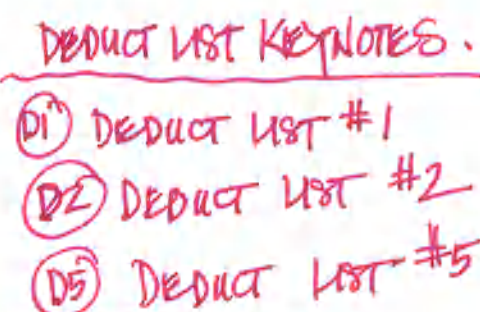 DEDUCT LIST KEYNOTES.
D1 DEDUCT LIST #1
D2 DEDUCT LIST #2
D5 DEDUCT LIST #5